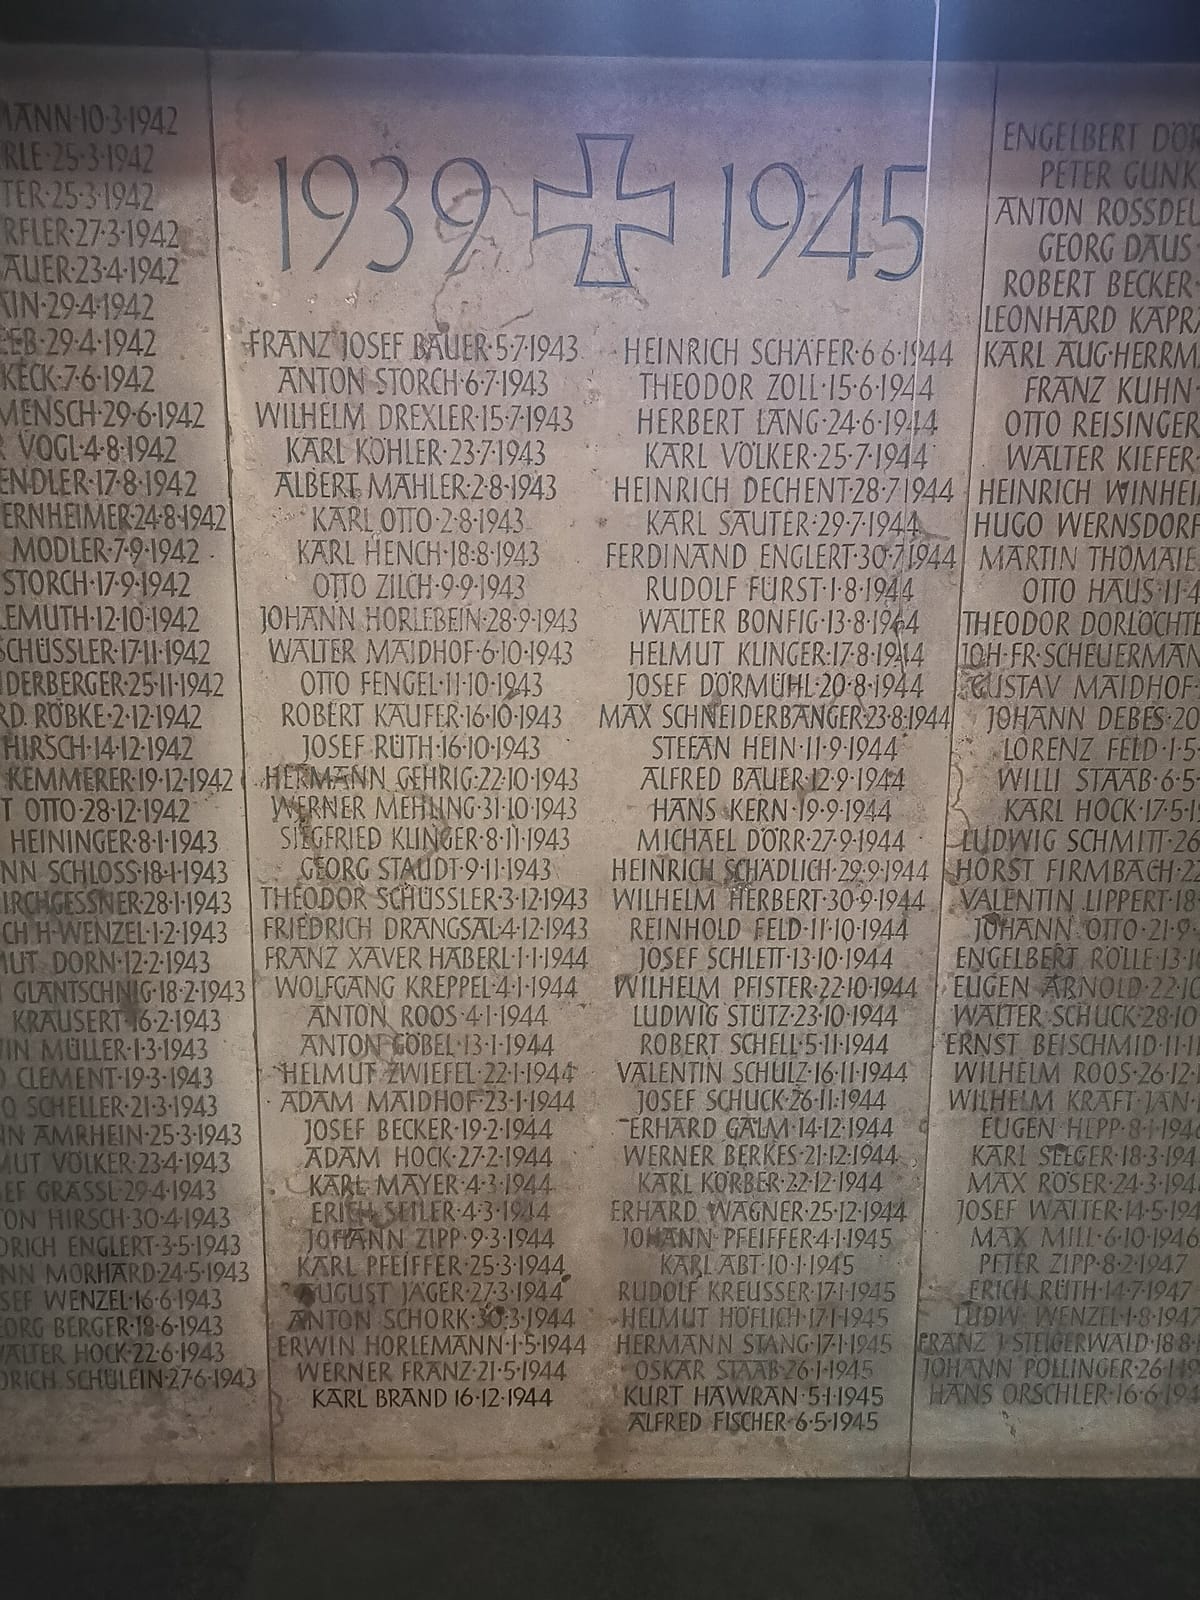 MANN·10·3·1942
RLE·25·3·1942
TER·25·3·1942
RFLER·27·3·1942
AUER·23·4·1942
AIN·29·4·1942
EEB·29·4·1942
KECK·7·6·1942
MENSCH·29·6·1942
VOGL·4·8·1942
ENDLER·17·8·1942
ERNHEIMER·24·8·1942
MODLER·7·9·1942
STORCH·17·9·1942
LEMUTH·12·10·1942
SCHÜSSLER·17·11·1942
DERBERGER·25·11·1942
RD. RÖBKE·2·12·1942
HIRSCH·14·12·1942
KEMMERER·19·12·1942
T OTTO·28·12·1942
HEININGER·8·1·1943
NN SCHLOSS·18·1·1943
IRCHGESSNER·28·1·1943
CH H·WENZEL·1·2·1943
MUT DORN·12·2·1943
GLANTSCHNIG·18·2·1943
KRAUSERT·16·2·1943
IN MÜLLER·1·3·1943
CLEMENT·19·3·1943
O SCHELLER·21·3·1943
NN AMRHEIN·25·3·1943
MUT VÖLKER·23·4·1943
EF GRASSL·29·4·1943
ON HIRSCH·30·4·1943
DRICH ENGLERT·3·5·1943
NN MORHARD·24·5·1943
SEF WENZEL·16·6·1943
EORG BERGER·18·6·1943
WALTER HOCK·22·6·1943
DRICH SCHÜLEIN·27·6·1943
1939 1945
FRANZ JOSEF BAUER·5·7·1943
ANTON STORCH·6·7·1943
WILHELM DREXLER·15·7·1943
KARL KÖHLER·23·7·1943
ALBERT MAHLER·2·8·1943
KARL OTTO·2·8·1943
KARL HENCH·18·8·1943
OTTO ZILCH·9·9·1943
JOHANN HORLEBEIN·28·9·1943
WALTER MAIDHOF·6·10·1943
OTTO FENGEL·11·10·1943
ROBERT KAUFER·16·10·1943
JOSEF RÜTH·16·10·1943
HERMANN GEHRIG·22·10·1943
WERNER MEHLING·31·10·1943
SIEGFRIED KLINGER·8·11·1943
GEORG STAUDT·9·11·1943
THEODOR SCHÜSSLER·3·12·1943
FRIEDRICH DRANGSAL·4·12·1943
FRANZ XAVER HÄBERL·1·1·1944
WOLFGANG KREPPEL·4·1·1944
ANTON ROOS·4·1·1944
ANTON GÖBEL·13·1·1944
HELMUT ZWIEFEL·22·1·1944
ADAM MAIDHOF·23·1·1944
JOSEF BECKER·19·2·1944
ADAM HOCK·27·2·1944
KARL MAYER·4·3·1944
ERICH SEILER·4·3·1944
JOHANN ZIPP·9·3·1944
KARL PFEIFFER·25·3·1944
AUGUST JÄGER·27·3·1944
ANTON SCHORK·30·3·1944
ERWIN HORLEMANN·1·5·1944
WERNER FRANZ·21·5·1944
KARL BRAND 16·12·1944
HEINRICH SCHÄFER·6·6·1944
THEODOR ZOLL·15·6·1944
HERBERT LANG·24·6·1944
KARL VÖLKER·25·7·1944
HEINRICH DECHENT·28·7·1944
KARL SAUTER·29·7·1944
FERDINAND ENGLERT·30·7·1944
RUDOLF FÜRST·1·8·1944
WALTER BONFIG·13·8·1944
HELMUT KLINGER·17·8·1944
JOSEF DÖRMÜHL·20·8·1944
MAX SCHNEIDERBANGER·23·8·1944
STEFAN HEIN·11·9·1944
ALFRED BAUER·12·9·1944
HANS KERN·19·9·1944
MICHAEL DÖRR·27·9·1944
HEINRICH SCHÄDLICH·29·9·1944
WILHELM HERBERT·30·9·1944
REINHOLD FELD·11·10·1944
JOSEF SCHLETT·13·10·1944
WILHELM PFISTER·22·10·1944
LUDWIG STÜTZ·23·10·1944
ROBERT SCHELL·5·11·1944
VALENTIN SCHULZ·16·11·1944
JOSEF SCHUCK·26·11·1944
ERHARD GALM·14·12·1944
WERNER BERKES·21·12·1944
KARL KÖRBER·22·12·1944
ERHARD WAGNER·25·12·1944
JOHANN PFEIFFER·4·1·1945
KARL ABT·10·1·1945
RUDOLF KREUSSER·17·1·1945
HELMUT HÖFLICH·17·1·1945
HERMANN STANG·17·1·1945
OSKAR STAAB·26·1·1945
KURT HAWRAN·5·1·1945
ALFRED FISCHER·6·5·1945
ENGELBERT DÖR
PETER GUNK
ANTON ROSSDE
GEORG DAUS
ROBERT BECKER·
LEONHARD KAPR
KARL AUG·HERRM
FRANZ KUHN
OTTO REISINGER
WALTER KIEFER·
HEINRICH WINHEI
HUGO WERNSDOR
MARTIN THOMAE
OTTO HAUS·11·4
THEODOR DÖRLOCHTE
JOH·FR·SCHEUERMAN
GUSTAV MAIDHOF·
JOHANN DEBES·20
LORENZ FELD·1·5
WILLI STAAB·6·5
KARL HOCK·17·5·1
LUDWIG SCHMITT·26
HORST FIRMBACH·22
VALENTIN LIPPERT·18
JOHANN OTTO·21·9·
ENGELBERT RÖLLE·13·1
EUGEN ARNOLD·22·10
WALTER SCHUCK·28·10
ERNST BEISCHMID·11·1
WILHELM ROOS·26·12·
WILHELM KRAFT·JAN·
EUGEN HEPP·8·1·1946
KARL SEEGER·18·3·194
MAX RÖSER·24·3·194
JOSEF WALTER·14·5·194
MAX MILL·6·10·1946
PETER ZIPP·8·2·1947
ERICH RÜTH·14·7·1947
LUDW· WENZEL·1·8·1947
FRANZ J·STEIGERWALD·18·8
JOHANN POLLINGER·26·1·19
HANS ORSCHLER·16·6·19